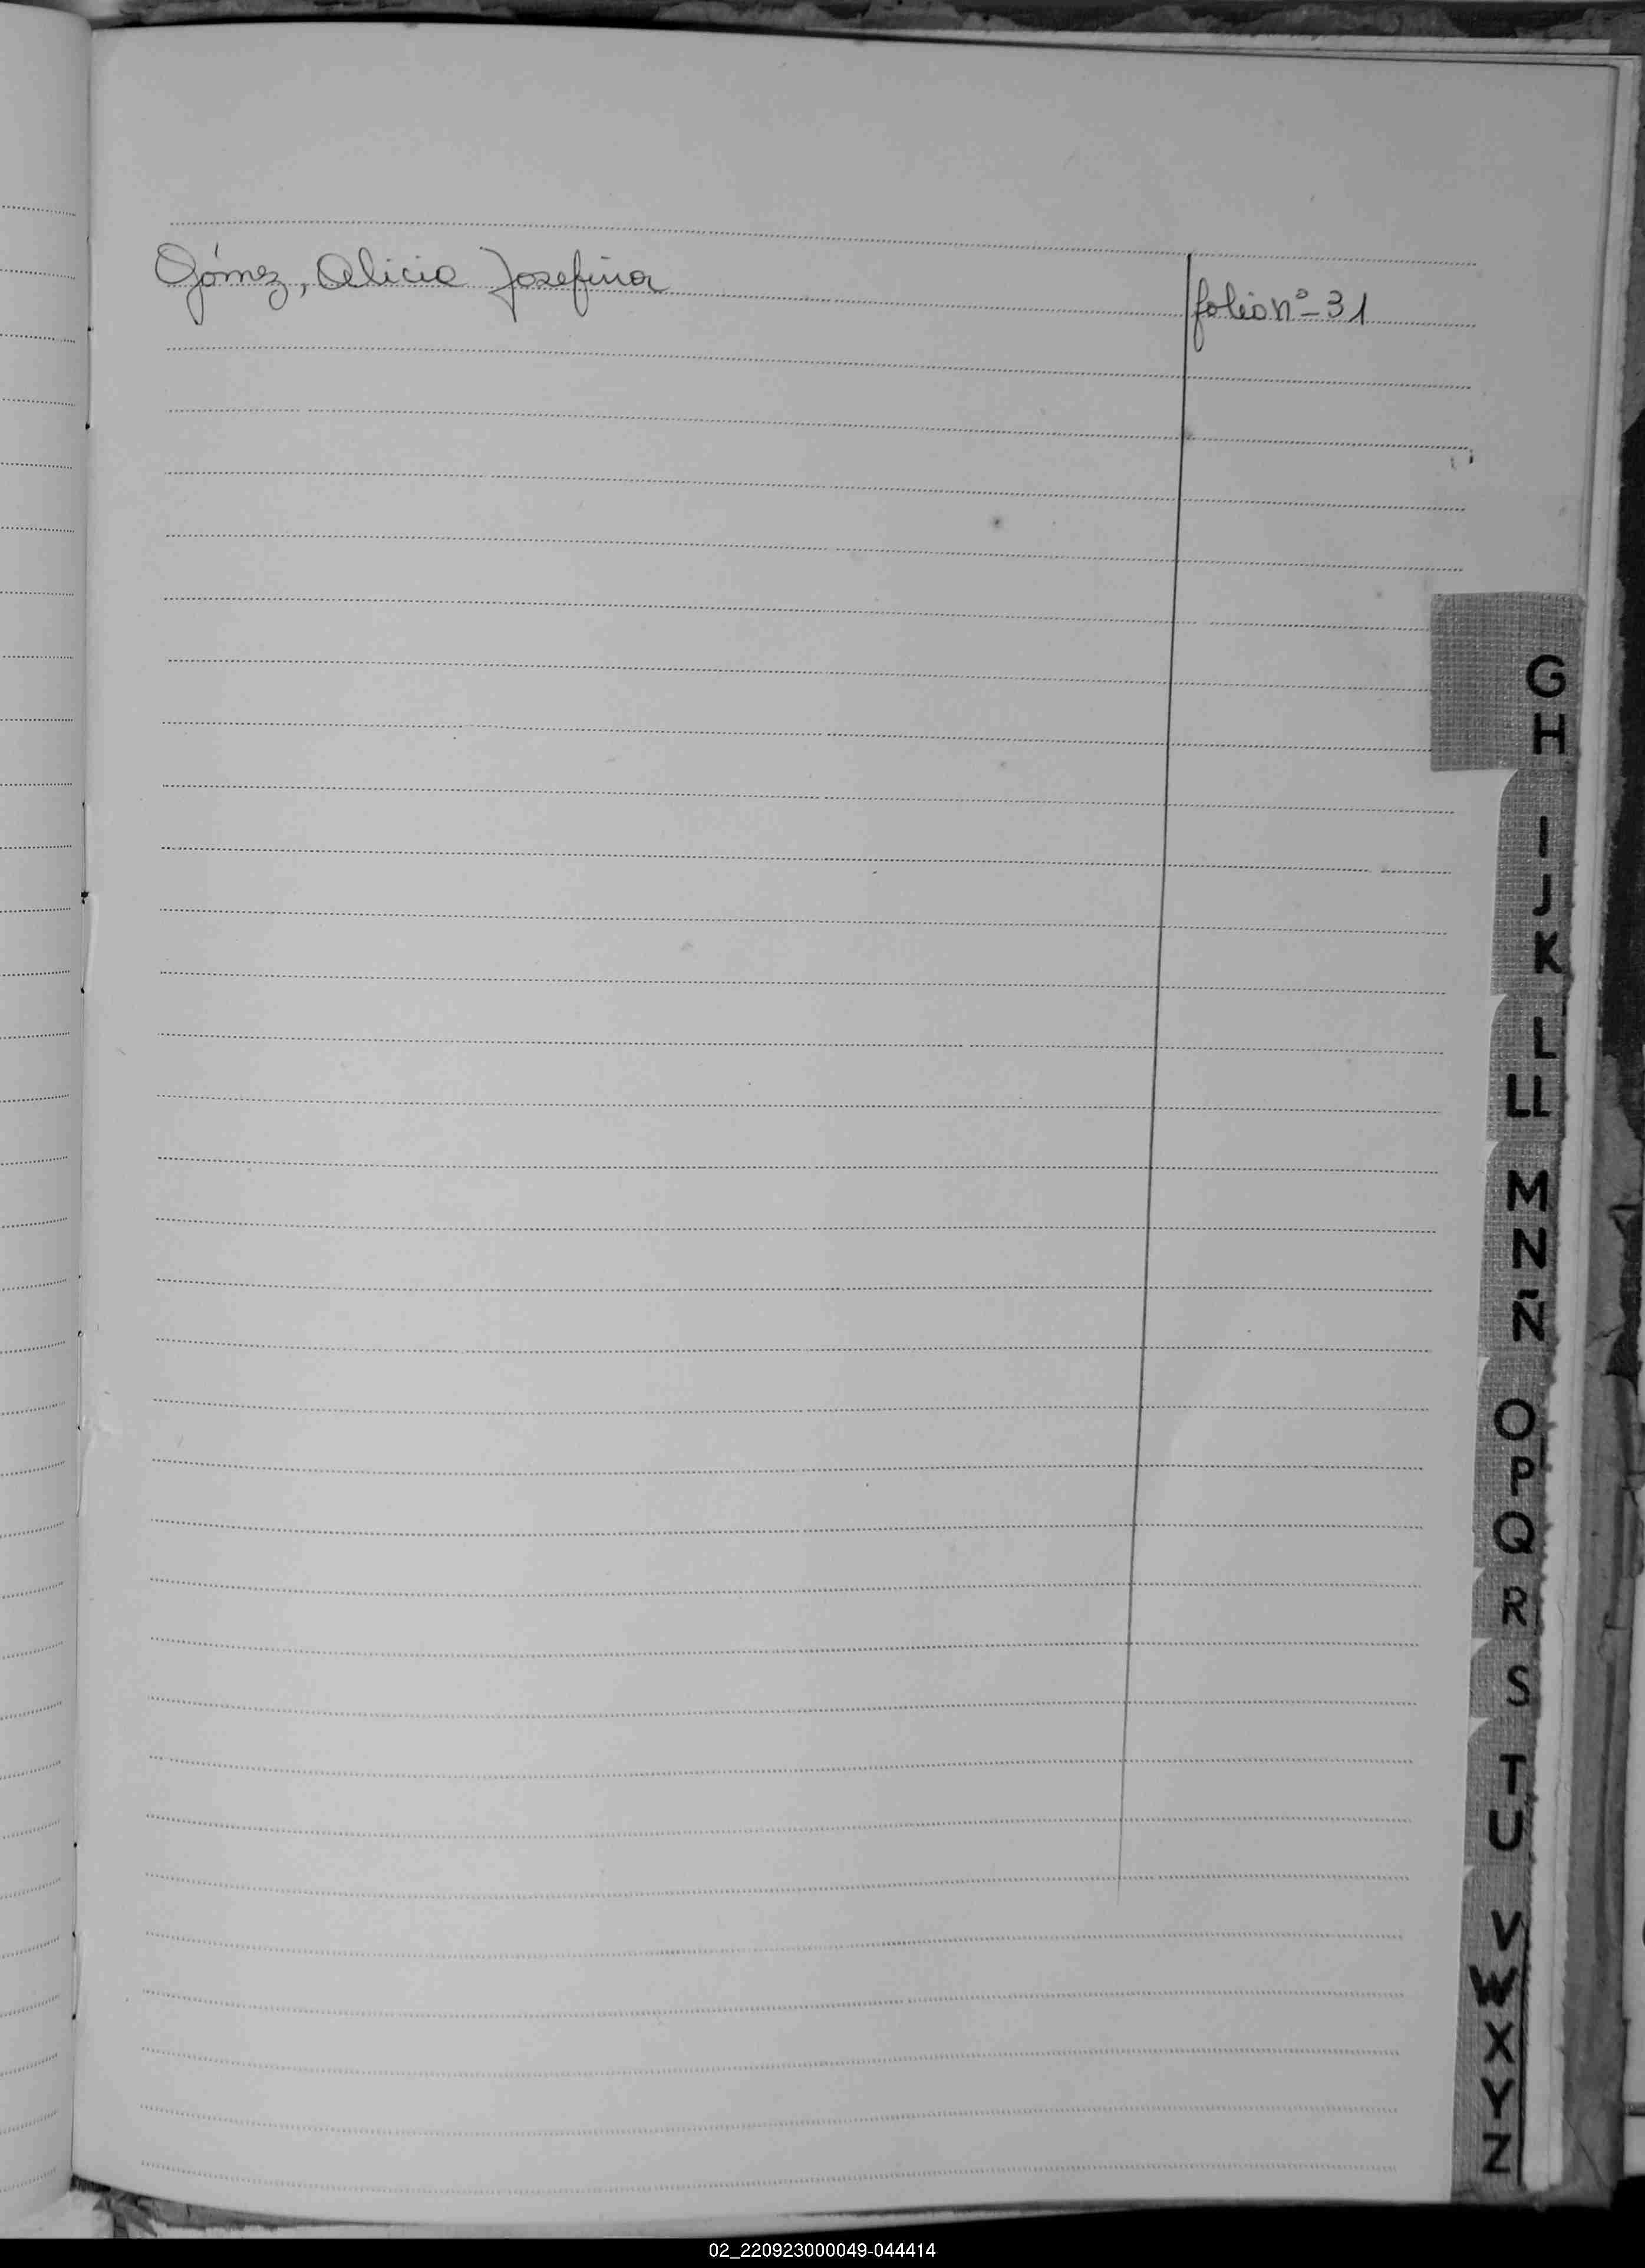 Gómez, Alicia Josefina folio nº 31
G
H
I
J
K
L
LL
M
N
Ñ
O
P
Q
R
S
T
U
V
W
X
Y
Z
02_220923000049-044414